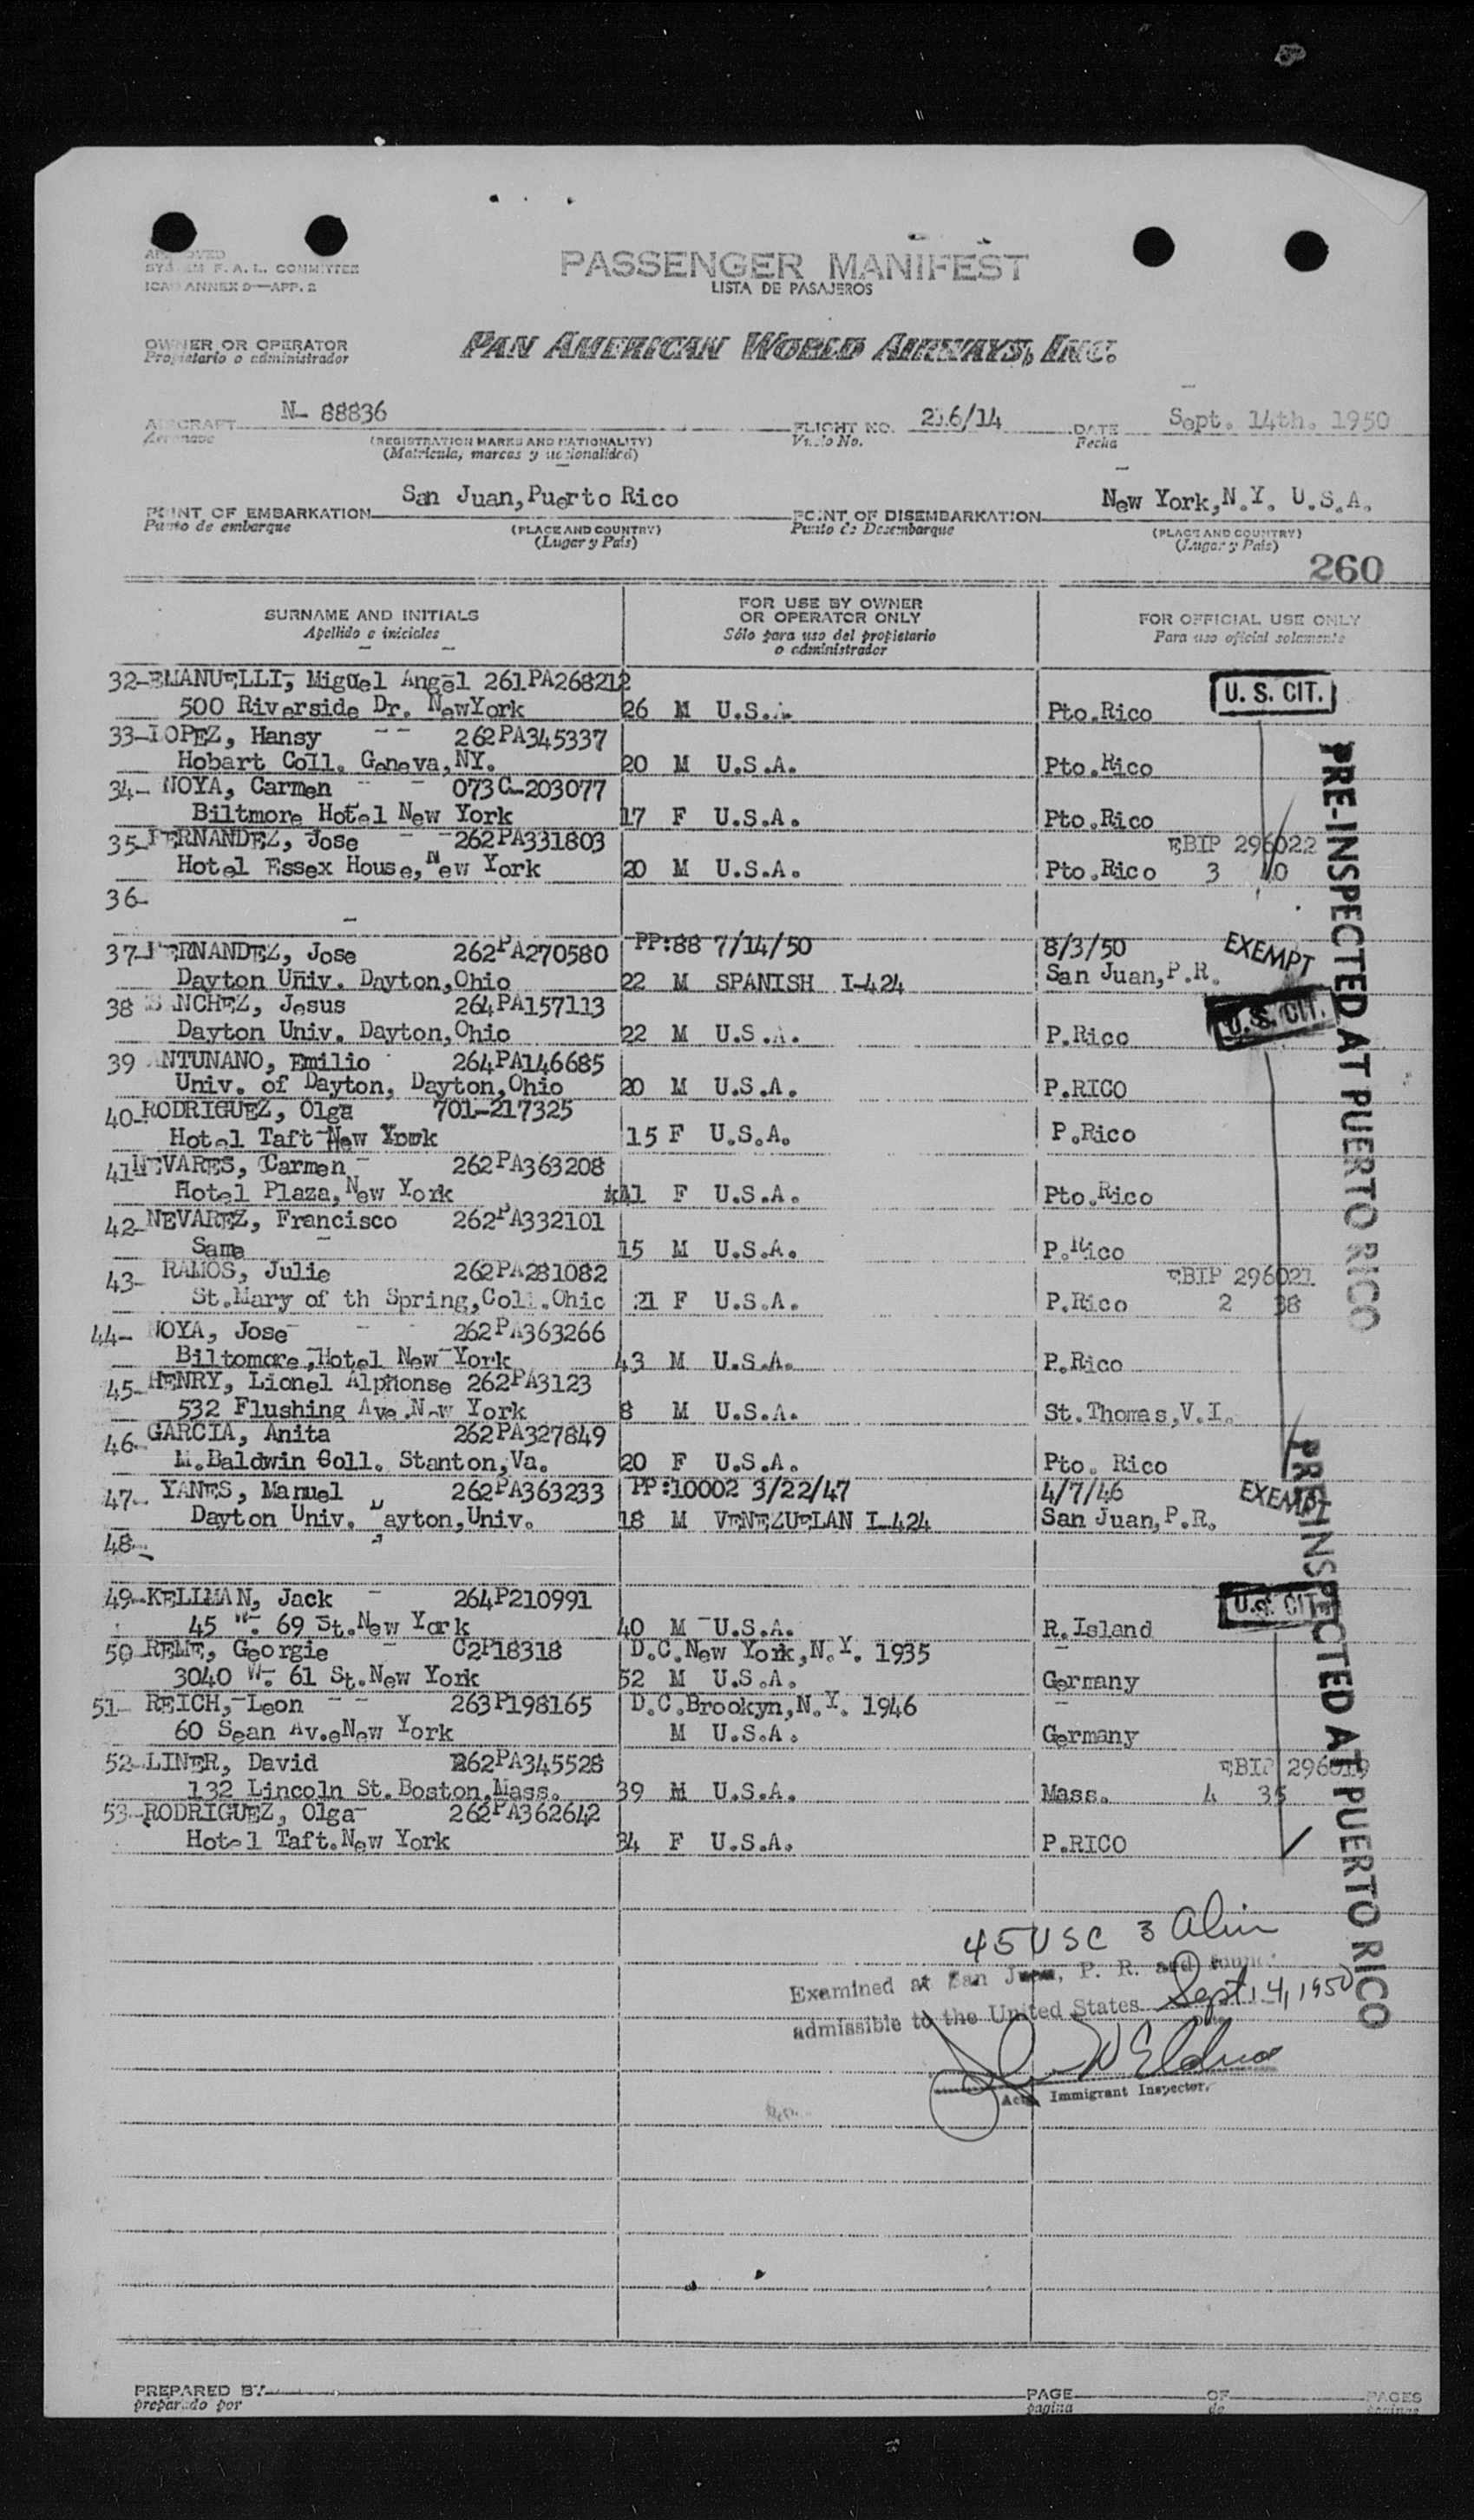 APPROVED
SYSTEM F. A. L. COMMITTEE
ICAO ANNEX 9—APP. 2
PASSENGER MANIFEST
LISTA DE PASAJEROS
OWNER OR OPERATOR
Propietario o administrador
PAN AMERICAN WORLD AIRWAYS, INC.
AIRCRAFT N- 88836
Aeronave
(REGISTRATION MARKS AND NATIONALITY)
(Matricula, marcas y nacionalidad)
FLIGHT NO. 216/14
Vuelo No.
DATE Sept. 14th. 1950
Fecha
POINT OF EMBARKATION San Juan, Puerto Rico
Punto de embarque
(PLACE AND COUNTRY)
(Lugar y País)
POINT OF DISEMBARKATION New York, N.Y. U.S.A.
Punto de Desembarque
(PLACE AND COUNTRY)
(Lugar y País)
260
SURNAME AND INITIALS
Apellido e iniciales
FOR USE BY OWNER
OR OPERATOR ONLY
Sólo para uso del propietario
o administrador
FOR OFFICIAL USE ONLY
Para uso oficial solamente
32- EMANUELLI, Miguel Angel 261PA268212
500 Riverside Dr. NewYork 26 M U.S.A. Pto.Rico U. S. CIT.
33- LOPEZ, Hansy 262PA345337
Hobart Coll. Geneva, NY. 20 M U.S.A. Pto.Rico
34- NOYA, Carmen 073C-203077
Biltmore Hotel New York 17 F U.S.A. Pto.Rico
35- FERNANDEZ, Jose 262PA331803 EBIP 296022
Hotel Essex House, New York 20 M U.S.A. Pto.Rico 3 40
36-
37- FERNANDEZ, Jose 262PA270580 PP:88 7/14/50 8/3/50 EXEMPT
Dayton Univ. Dayton, Ohio 22 M SPANISH I-424 San Juan, P.R.
38 SANCHEZ, Jesus 264PA157113 U.S. CIT.
Dayton Univ. Dayton, Ohio 22 M U.S.A. P.Rico
39 ANTUNANO, Emilio 264PA146685
Univ. of Dayton, Dayton, Ohio 20 M U.S.A. P.RICO
40- RODRIGUEZ, Olga 701-217325
Hotel Taft New York 15 F U.S.A. P.Rico
41 NEVARES, Carmen 262PA363208
Hotel Plaza, New York 41 F U.S.A. Pto.Rico
42- NEVAREZ, Francisco 262PA332101
Same 15 M U.S.A. P.Rico
43- RAMOS, Julie 262PA281082 EBIP 296021
St.Mary of th Spring, Coll.Ohio 21 F U.S.A. P.Rico 2 38
44- NOYA, Jose 262PA363266
Biltomore, Hotel New York 43 M U.S.A. P.Rico
45- HENRY, Lionel Alphonse 262PA3123
532 Flushing Ave. New York 8 M U.S.A. St.Thomas, V.I.
46- GARCIA, Anita 262PA327849
M.Baldwin Coll. Stanton, Va. 20 F U.S.A. Pto. Rico
47- YANES, Manuel 262PA363233 PP:10002 3/22/47 4/7/46 EXEMPT
Dayton Univ. Dayton, Univ. 18 M VENEZUELAN I-424 San Juan, P.R.
48-
49- KELLMAN, Jack 264P210991 U.S. CIT.
45 W. 69 St. New York 40 M U.S.A. R.Island
50- REME, Georgie C2P18318 D.C.New York, N.Y. 1935
3040 W. 61 St. New York 52 M U.S.A. Germany
51- REICH, Leon 263P198165 D.C.Brookyn, N.Y. 1946
60 Sean Av.eNew York M U.S.A. Germany
52- LINER, David 262PA345528 EBIP 296019
132 Lincoln St. Boston, Mass. 39 M U.S.A. Mass. 4 35
53- RODRIGUEZ, Olga 262PA362642
Hotel Taft. New York 34 F U.S.A. P.RICO
PRE-INSPECTED AT PUERTO RICO
PRE-INSPECTED AT PUERTO RICO
45 USC 3 Alien
Examined at San Juan, P. R. and found
admissible to the United States Sept 14, 1950
Immigrant Inspector.
PREPARED BY
preparado por
PAGE OF PAGES
pagina de paginas